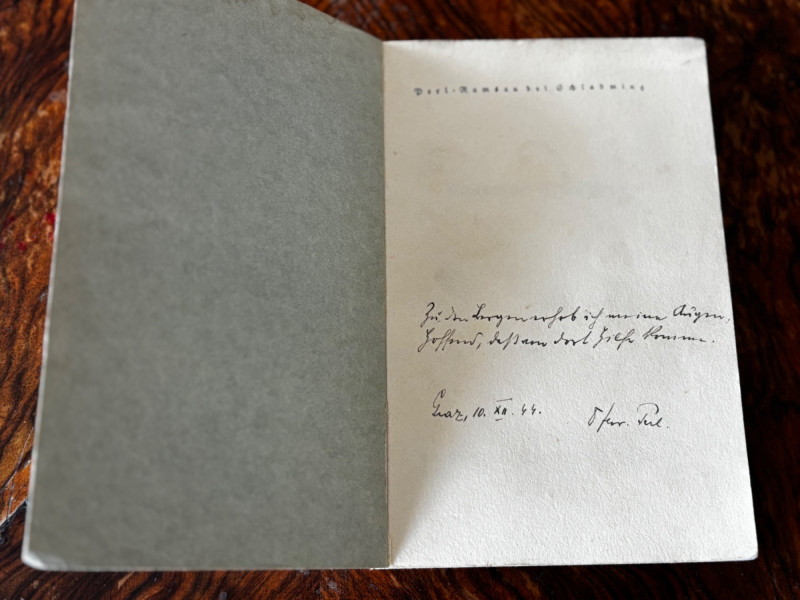 Perl-Ramsau bei Schladming
Zu den Bergen erhob ich meine Augen,
hoffend, daß von dort Hilfe komme.
Graz, 10. XII. 44.